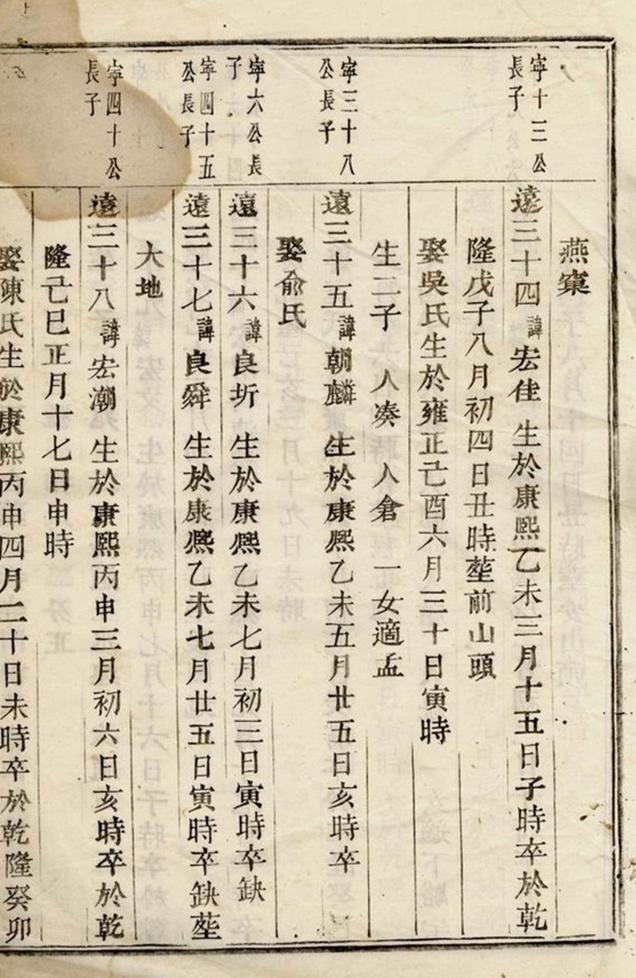 燕窠
寧十三公
長子
遠三十四諱宏佳 生於康熙乙未三月十五日子時卒於乾
隆戊子八月初四日丑時塟前山頭
娶吳氏生於雍正己酉六月三十日寅時
生二子 人凑 人倉 一女適孟
寧三十八
公長子
遠三十五諱朝麟 生於康熙乙未五月廿五日亥時卒
娶俞氏
寧六公長
子
遠三十六諱良圻 生於康熙乙未七月初三日寅時卒缺
寧四十五
公長子
遠三十七諱良舜 生於康熙乙未七月廿五日寅時卒缺塟
大地
寧四十公
長子
遠三十八諱宏潮 生於康熙丙申三月初六日亥時卒於乾
隆己巳正月十七日申時
娶陳氏生於康熙丙申四月二十日未時卒於乾隆癸卯